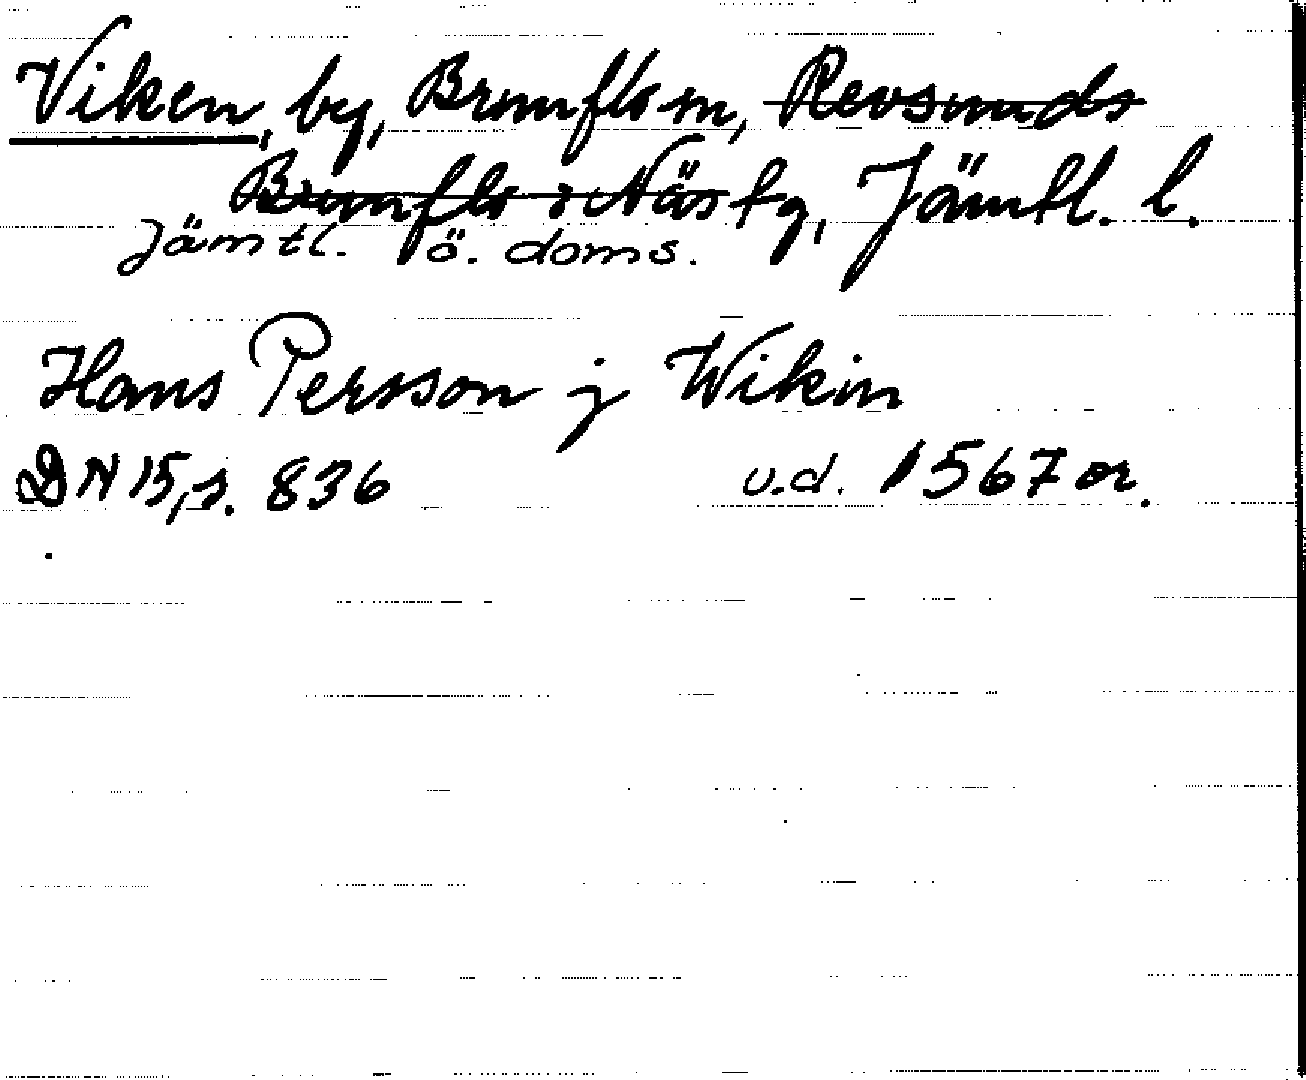 Viken, by, Brunflo sn, Revsunds
Brunflo o Näs tg, Jämtl. l.
Jämtl. ö. doms.
Hans Persson j Wikin
DN 15, s. 836 u.d. 1567 or.